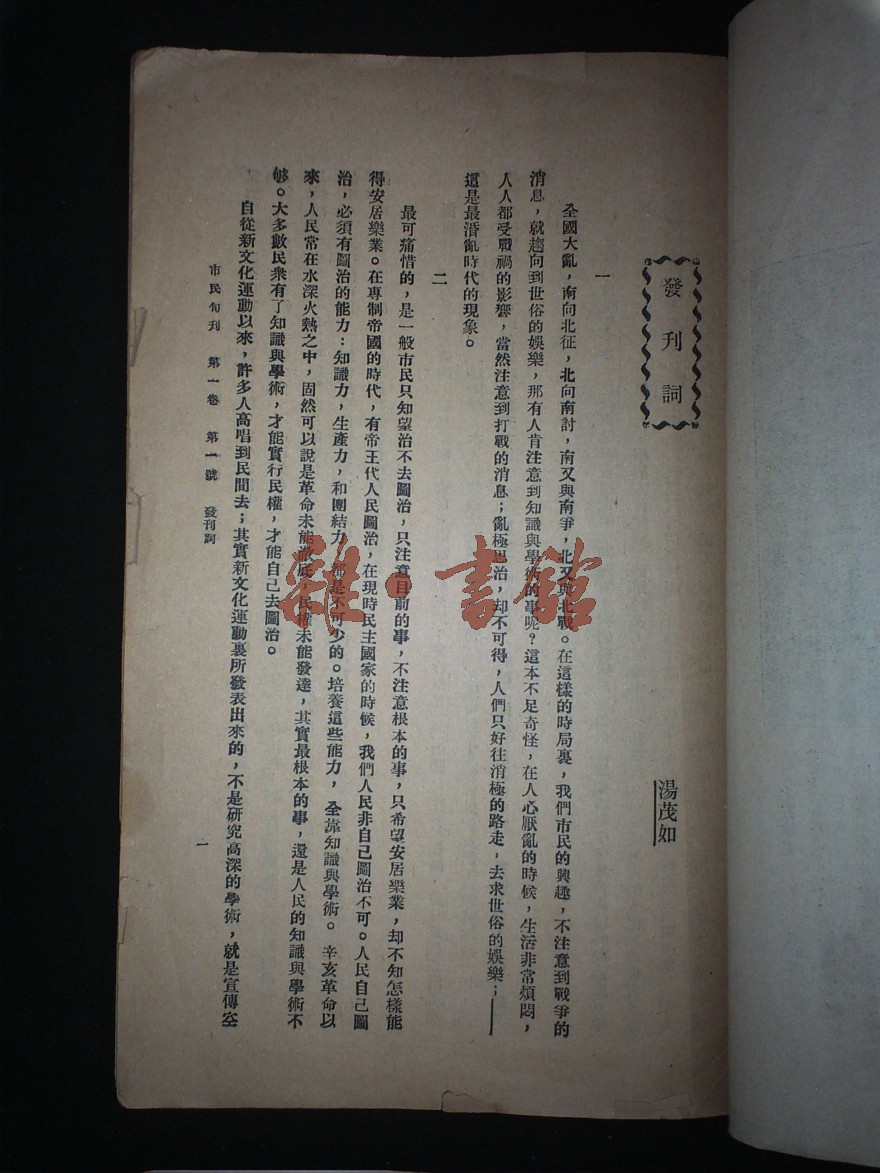 發刊詞
湯茂如
一
全國大亂，南向北征，北向南討，南又與南爭，北又與北戰。在這樣的時局裏，我們市民的興趣，不注意到戰爭的
消息，就趨向到世俗的娛樂，那有人肯注意到知識與學術的事呢？這本不足奇怪，在人心厭亂的時候，生活非常煩悶，
人人都受戰禍的影響，當然注意到打戰的消息；亂極思治，却不可得，人們只好往消極的路走，去求世俗的娛樂；——
這是最溷亂時代的現象。
二
最可痛惜的，是一般市民只知望治不去圖治，只注意目前的事，不注意根本的事，只希望安居樂業，却不知怎樣能
得安居樂業。在專制帝國的時代，有帝王代人民圖治，在現時民主國家的時候，我們人民非自己圖治不可。人民自己圖
治，必須有圖治的能力：知識力，生產力，和團結力，都是不可少的。培養這些能力，全靠知識與學術。辛亥革命以
來，人民常在水深火熱之中，固然可以說是革命未能澈底，民權未能發達，其實最根本的事，還是人民的知識與學術不
够。大多數民衆有了知識與學術，才能實行民權，才能自己去圖治。
自從新文化運動以來，許多人高唱到民間去；其實新文化運動裏所發表出來的，不是研究高深的學術，就是宣傳空
市民旬刊 第一卷 第一號 發刊詞
一
雜·書館